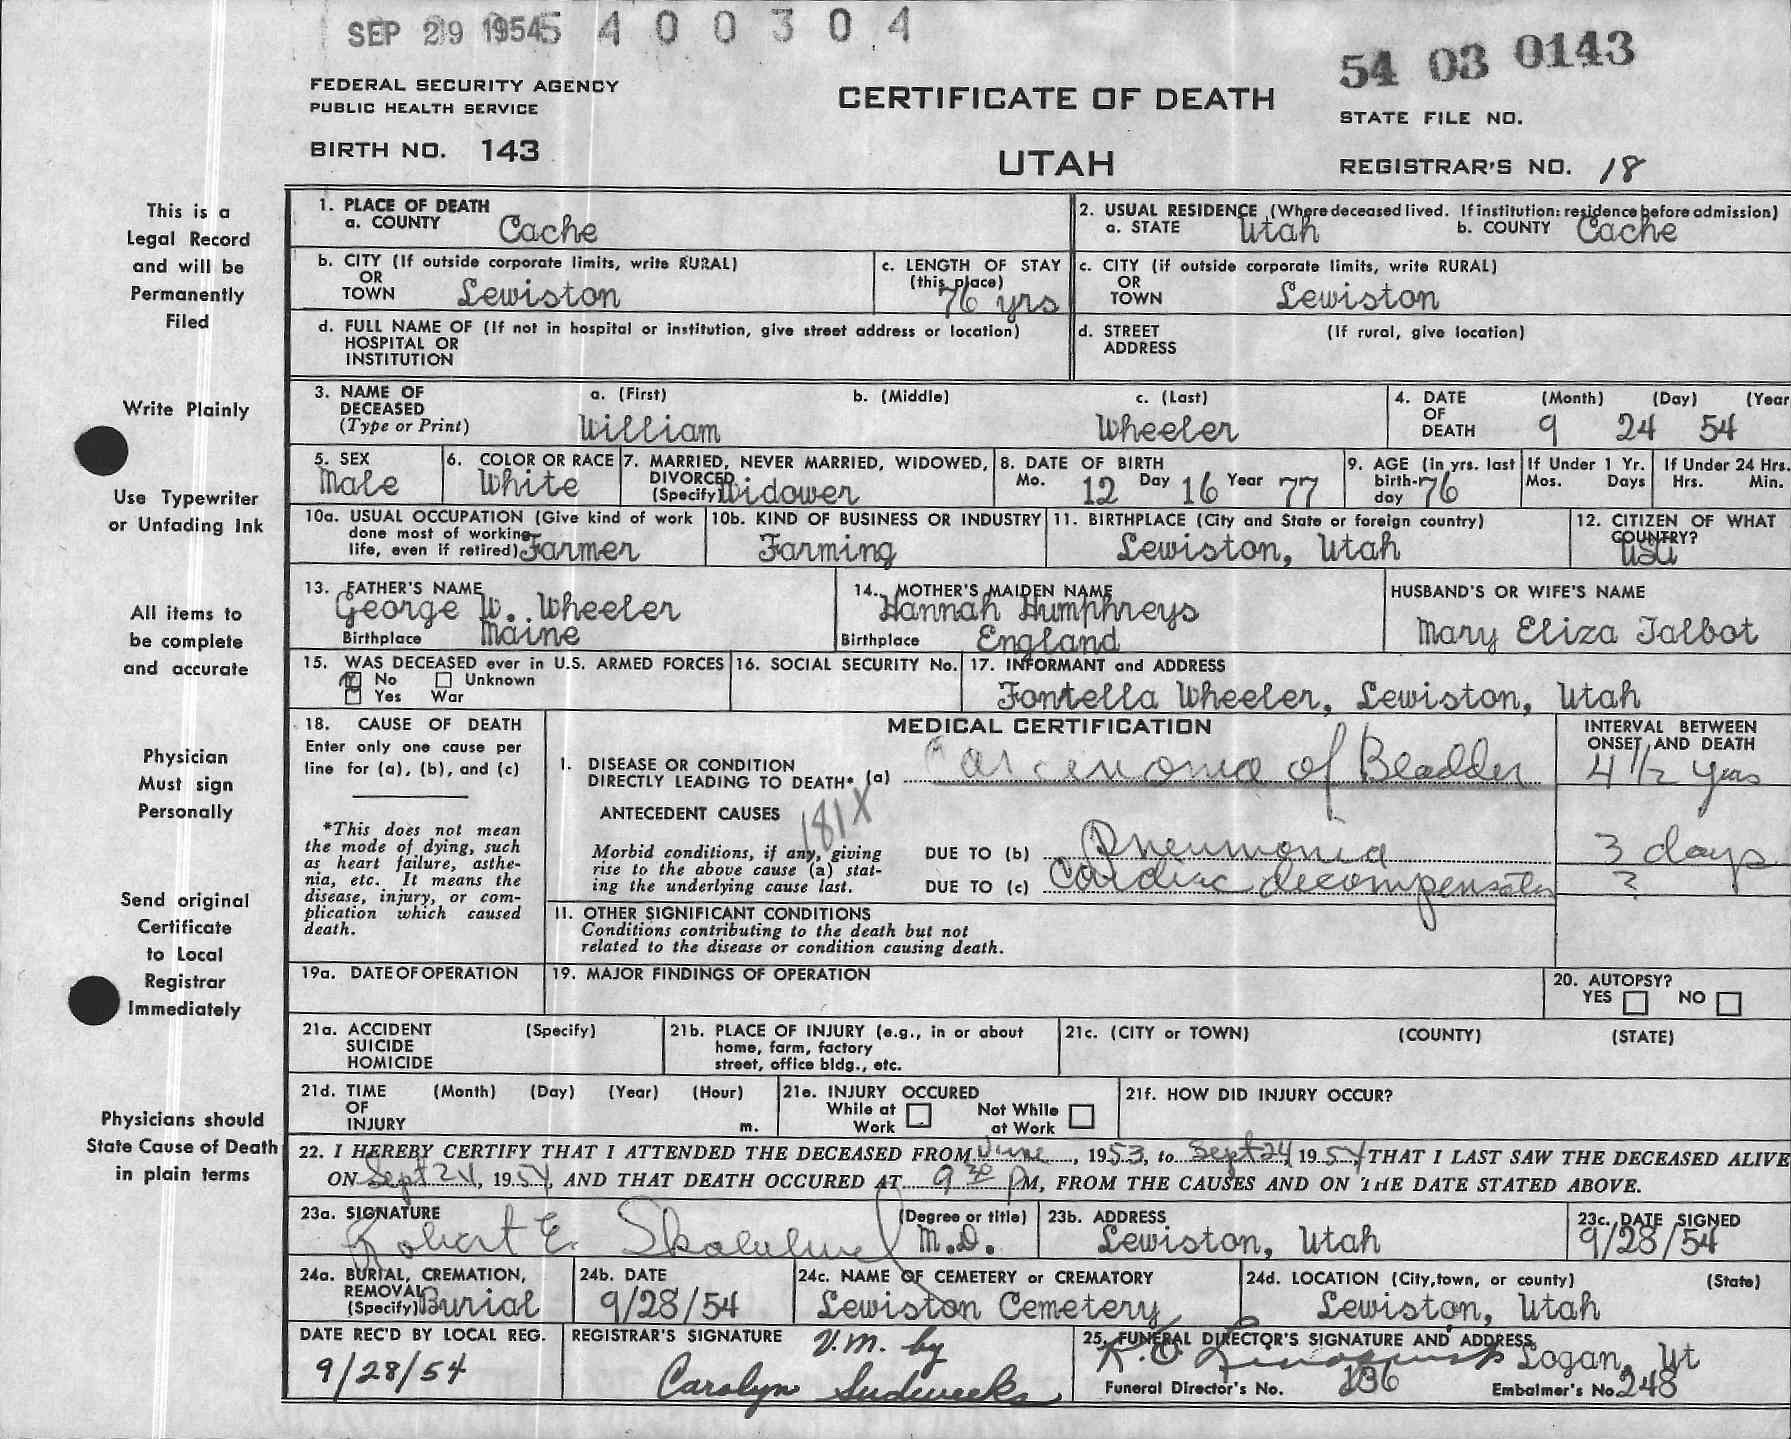 SEP 29 1954 5400304
54 03 0143
FEDERAL SECURITY AGENCY
PUBLIC HEALTH SERVICE
CERTIFICATE OF DEATH
STATE FILE NO.
BIRTH NO. 143
UTAH
REGISTRAR'S NO. 18
This is a
Legal Record
and will be
Permanently
Filed
Write Plainly
Use Typewriter
or Unfading Ink
All items to
be complete
and accurate
Physician
Must sign
Personally
Send original
Certificate
to Local
Registrar
Immediately
Physicians should
State Cause of Death
in plain terms
1. PLACE OF DEATH
a. COUNTY Cache
2. USUAL RESIDENCE (Where deceased lived. If institution: residence before admission)
a. STATE Utah b. COUNTY Cache
b. CITY (If outside corporate limits, write RURAL)
OR
TOWN Lewiston
c. LENGTH OF STAY
(this place)
76 yrs
c. CITY (if outside corporate limits, write RURAL)
OR
TOWN Lewiston
d. FULL NAME OF (If not in hospital or institution, give street address or location)
HOSPITAL OR
INSTITUTION
d. STREET (If rural, give location)
ADDRESS
3. NAME OF a. (First) b. (Middle) c. (Last)
DECEASED
(Type or Print) William Wheeler
4. DATE (Month) (Day) (Year
OF
DEATH 9 24 54
5. SEX
Male
6. COLOR OR RACE
White
7. MARRIED, NEVER MARRIED, WIDOWED,
DIVORCED
(Specify) Widower
8. DATE OF BIRTH
Mo. 12 Day 16 Year 77
9. AGE (in yrs. last
birth-
day 76
If Under 1 Yr.
Mos. Days
If Under 24 Hrs.
Hrs. Min.
10a. USUAL OCCUPATION (Give kind of work
done most of working
life, even if retired) Farmer
10b. KIND OF BUSINESS OR INDUSTRY
Farming
11. BIRTHPLACE (City and State or foreign country)
Lewiston, Utah
12. CITIZEN OF WHAT
COUNTRY?
USA
13. FATHER'S NAME
George W. Wheeler
Birthplace Maine
14. MOTHER'S MAIDEN NAME
Hannah Humphreys
Birthplace England
HUSBAND'S OR WIFE'S NAME
Mary Eliza Talbot
15. WAS DECEASED ever in U.S. ARMED FORCES
No Unknown
Yes War
16. SOCIAL SECURITY No.
17. INFORMANT and ADDRESS
Fontella Wheeler, Lewiston, Utah
18. CAUSE OF DEATH
Enter only one cause per
line for (a), (b), and (c)
*This does not mean
the mode of dying, such
as heart failure, asthe-
nia, etc. It means the
disease, injury, or com-
plication which caused
death.
MEDICAL CERTIFICATION
INTERVAL BETWEEN
ONSET AND DEATH
I. DISEASE OR CONDITION
DIRECTLY LEADING TO DEATH* (a) Carcenoma of Bladder 4 1/2 yrs
ANTECEDENT CAUSES 181X
Morbid conditions, if any, giving
rise to the above cause (a) stat-
ing the underlying cause last.
DUE TO (b) Pneumonia 3 days
DUE TO (c) Cardiac decompensation ?
II. OTHER SIGNIFICANT CONDITIONS
Conditions contributing to the death but not
related to the disease or condition causing death.
19a. DATE OF OPERATION
19. MAJOR FINDINGS OF OPERATION
20. AUTOPSY?
YES NO
21a. ACCIDENT (Specify)
SUICIDE
HOMICIDE
21b. PLACE OF INJURY (e.g., in or about
home, farm, factory
street, office bldg., etc.
21c. (CITY or TOWN) (COUNTY) (STATE)
21d. TIME (Month) (Day) (Year) (Hour)
OF
INJURY m.
21e. INJURY OCCURED
While at Not While
Work at Work
21f. HOW DID INJURY OCCUR?
22. I HEREBY CERTIFY THAT I ATTENDED THE DECEASED FROM June, 1953, to Sept 24 1954, THAT I LAST SAW THE DECEASED ALIVE
ON Sept 24, 1954, AND THAT DEATH OCCURED AT 9 30 PM, FROM THE CAUSES AND ON THE DATE STATED ABOVE.
23a. SIGNATURE (Degree or title)
Robert E. M.D.
23b. ADDRESS
Lewiston, Utah
23c. DATE SIGNED
9/28/54
24a. BURIAL, CREMATION,
REMOVAL
(Specify) Burial
24b. DATE
9/28/54
24c. NAME OF CEMETERY or CREMATORY
Lewiston Cemetery
24d. LOCATION (City, town, or county) (State)
Lewiston, Utah
DATE REC'D BY LOCAL REG.
9/28/54
REGISTRAR'S SIGNATURE V.M. by
Carolyn Sudweeks
25. FUNERAL DIRECTOR'S SIGNATURE AND ADDRESS
Logan, Ut
Funeral Director's No. 136 Embalmer's No. 248